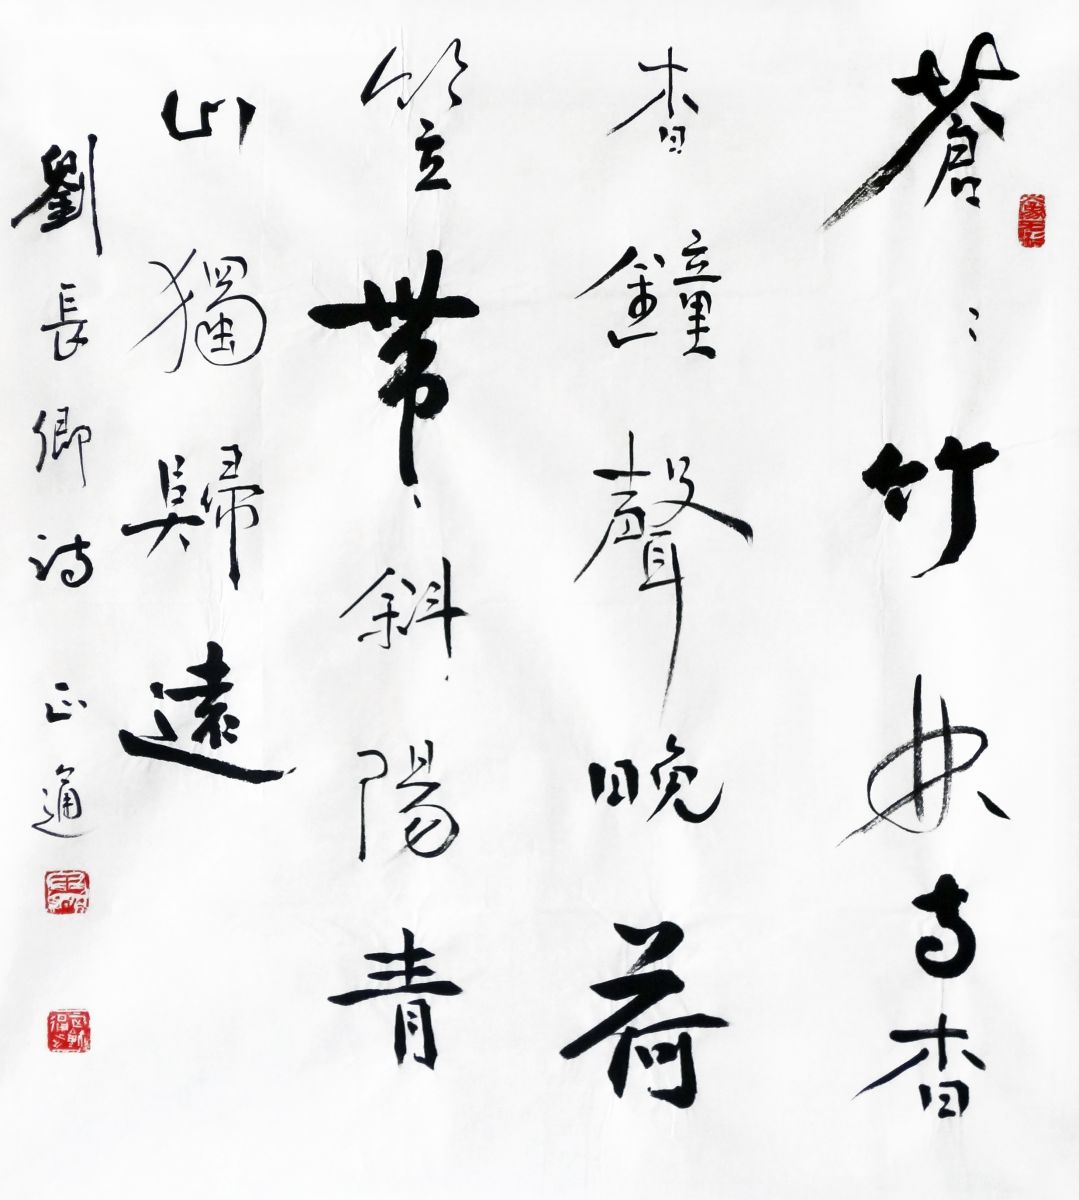 蒼〻竹林寺杳
杳鐘聲晚荷
笠帶斜陽青
山獨歸遠
劉長卿詩 正通